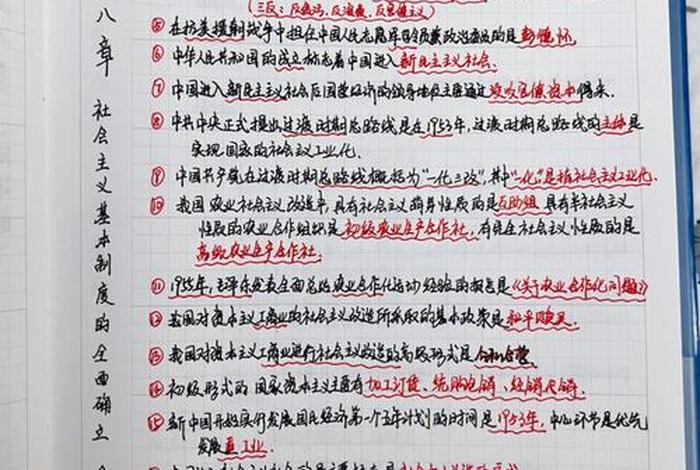 八章 社会主义基本制度的全面确立
(三反：反贪污、反浪费、反官僚主义)
⑤ 在抗美援朝战争中担任中国人民志愿军司令员兼政治委员的是彭德怀.
⑥ 中华人民共和国的成立标志着中国进入新民主主义社会.
⑦ 中国进入新民主主义社会后国营经济的领导地位主要通过没收官僚资本得来.
⑧ 中共中央正式提出过渡时期总路线是在1953年,过渡时期总路线的主体是
实现国家的社会主义工业化.
⑨ 中国共产党在过渡时期总路线概括为"一化三改",其中"一化"是指社会主义工业化.
⑩ 我国农业社会主义改造中,具有社会主义萌芽性质的是互助组 具有半社会主义
性质的农业合作组织是初级农业生产合作社,有完全社会主义性质的是
高级农业生产合作社.
⑪ 1955年,毛泽东发表全面总结农业合作化运动经验的报告是《关于农业合作化问题》
⑫ 我国对资本主义工商业的社会主义改造所采取的基本政策是和平赎买.
⑬ 我国对资本主义工商业进行社会主义改造的高级形式是公私合营.
⑭ 初级形式的国家资本主义主要有加工订货、统购包销、经销代销.
⑮ 新中国开始实行发展国民经济第一个五年计划的时间是1953年,中心环节是优先
发展重工业.